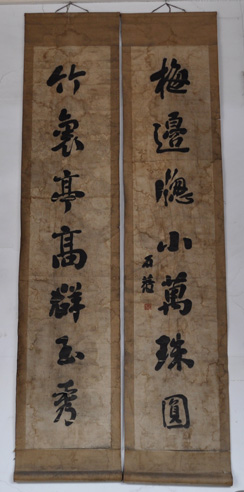 梅邊牕小萬珠圓
竹裏亭高群玉秀